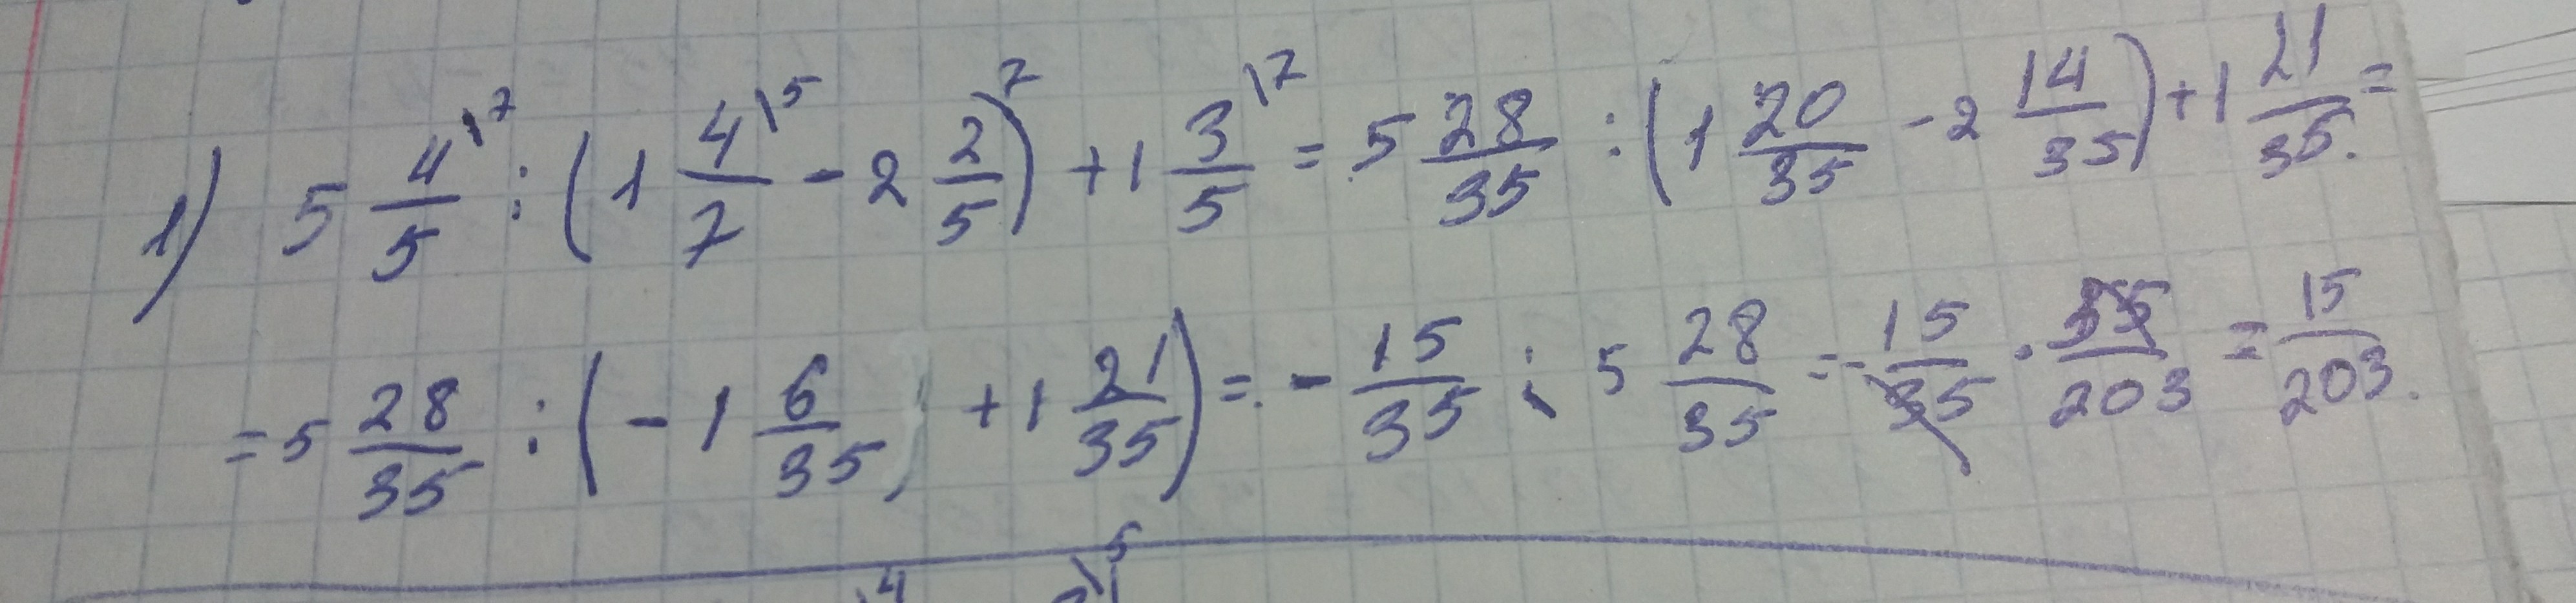 1) 5 4/5 \7 : (1 4/7 \5 - 2 2/5) 7 + 1 3/5 \7 = 5 28/35 : (1 20/35 - 2 14/35) + 1 21/35 =
= 5 28/35 : (- 1 6/35) + 1 21/35) = - 15/35 : 5 28/35 = - 15/35 · 35/203 = 15/203.
4 5